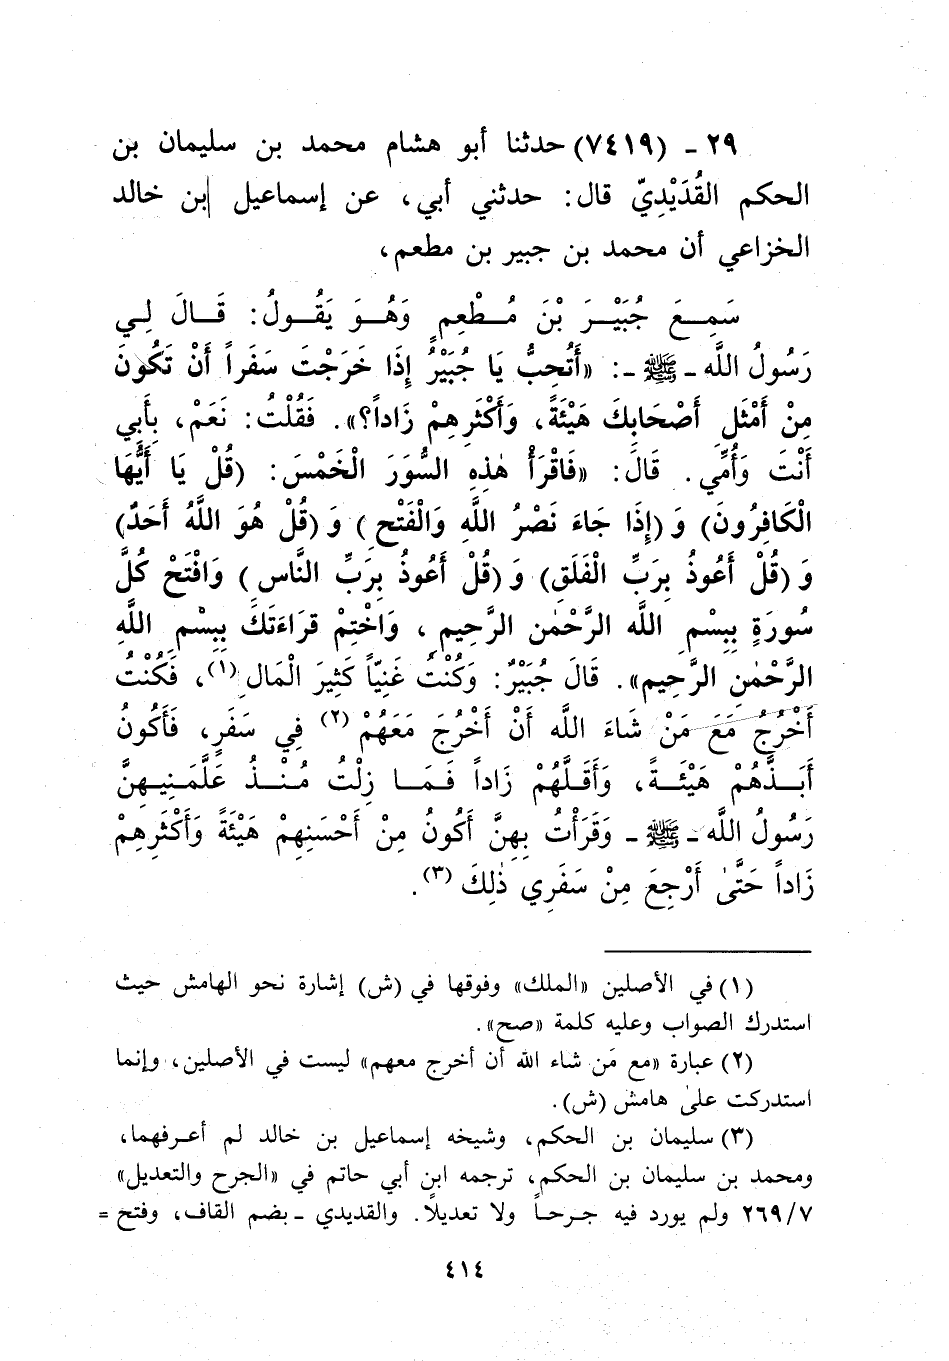 ٢٩ ـ (٧٤١٩) حدثنا أبو هشام محمد بن سليمان بن
الحكم القُدَيْدِيّ قال: حدثني أبي، عن إسماعيل بن خالد
الخزاعي أن محمد بن جبير بن مطعم،
سَمِعَ جُبَيْرَ بْنَ مُطْعِمٍ وَهُوَ يَقُولُ: قَالَ لِي
رَسُولُ اللَّه ـ ﷺ ـ: «أَتُحِبُّ يَا جُبَيْرُ إِذَا خَرَجْتَ سَفَراً أَنْ تَكُونَ
مِنْ أَمْثَلِ أَصْحَابِكَ هَيْئَةً، وَأَكْثَرِهِمْ زَاداً؟». فَقُلْتُ: نَعَمْ، بِأَبِي
أَنْتَ وَأُمِّي. قَالَ: «فَاقْرَأْ هٰذِهِ السُّوَرَ الْخَمْسَ: (قُلْ يَا أَيُّهَا
الْكَافِرُونَ) وَ (إِذَا جَاءَ نَصْرُ اللَّهِ وَالْفَتْحِ) وَ (قُلْ هُوَ اللَّهُ أَحَدٌ)
وَ (قُلْ أَعُوذُ بِرَبِّ الْفَلَقِ) وَ (قُلْ أَعُوذُ بِرَبِّ النَّاسِ) وَافْتَحْ كُلَّ
سُورَةٍ بِبِسْمِ اللَّه الرَّحْمٰنِ الرَّحِيمِ، وَاخْتِمْ قِرَاءَتَكَ بِبِسْمِ اللَّهِ
الرَّحْمٰنِ الرَّحِيمِ». قَالَ جُبَيْرٌ: وَكُنْتُ غَنِيّاً كَثِيرَ الْمَالِ (١)، فَكُنْتُ
أَخْرُجُ مَعَ مَنْ شَاءَ اللَّه أَنْ أَخْرُجَ مَعَهُمْ (٢) فِي سَفَرٍ، فَأَكُونُ
أَبَذَّهُمْ هَيْئَةً، وَأَقَلَّهُمْ زَاداً فَمَا زِلْتُ مُنْذُ عَلَّمَنِيهِنَّ
رَسُولُ اللَّه ـ ﷺ ـ وَقَرَأْتُ بِهِنَّ أَكُونُ مِنْ أَحْسَنِهِمْ هَيْئَةً وَأَكْثَرِهِمْ
زَاداً حَتَّىٰ أَرْجِعَ مِنْ سَفَرِي ذٰلِكَ (٣).
(١) في الأصلين «الملك» وفوقها في (ش) إشارة نحو الهامش حيث
استدرك الصواب وعليه كلمة «صح».
(٢) عبارة «مع مَن شاء الله أن أخرج معهم» ليست في الأصلين، وإنما
استدركت علىٰ هامش (ش).
(٣) سليمان بن الحكم، وشيخه إسماعيل بن خالد لم أعرفهما،
ومحمد بن سليمان بن الحكم، ترجمه ابن أبي حاتم في «الجرح والتعديل»
٢٦٩/٧ ولم يورد فيه جرحاً ولا تعديلًا. والقديدي ـ بضم القاف، وفتح =
٤١٤